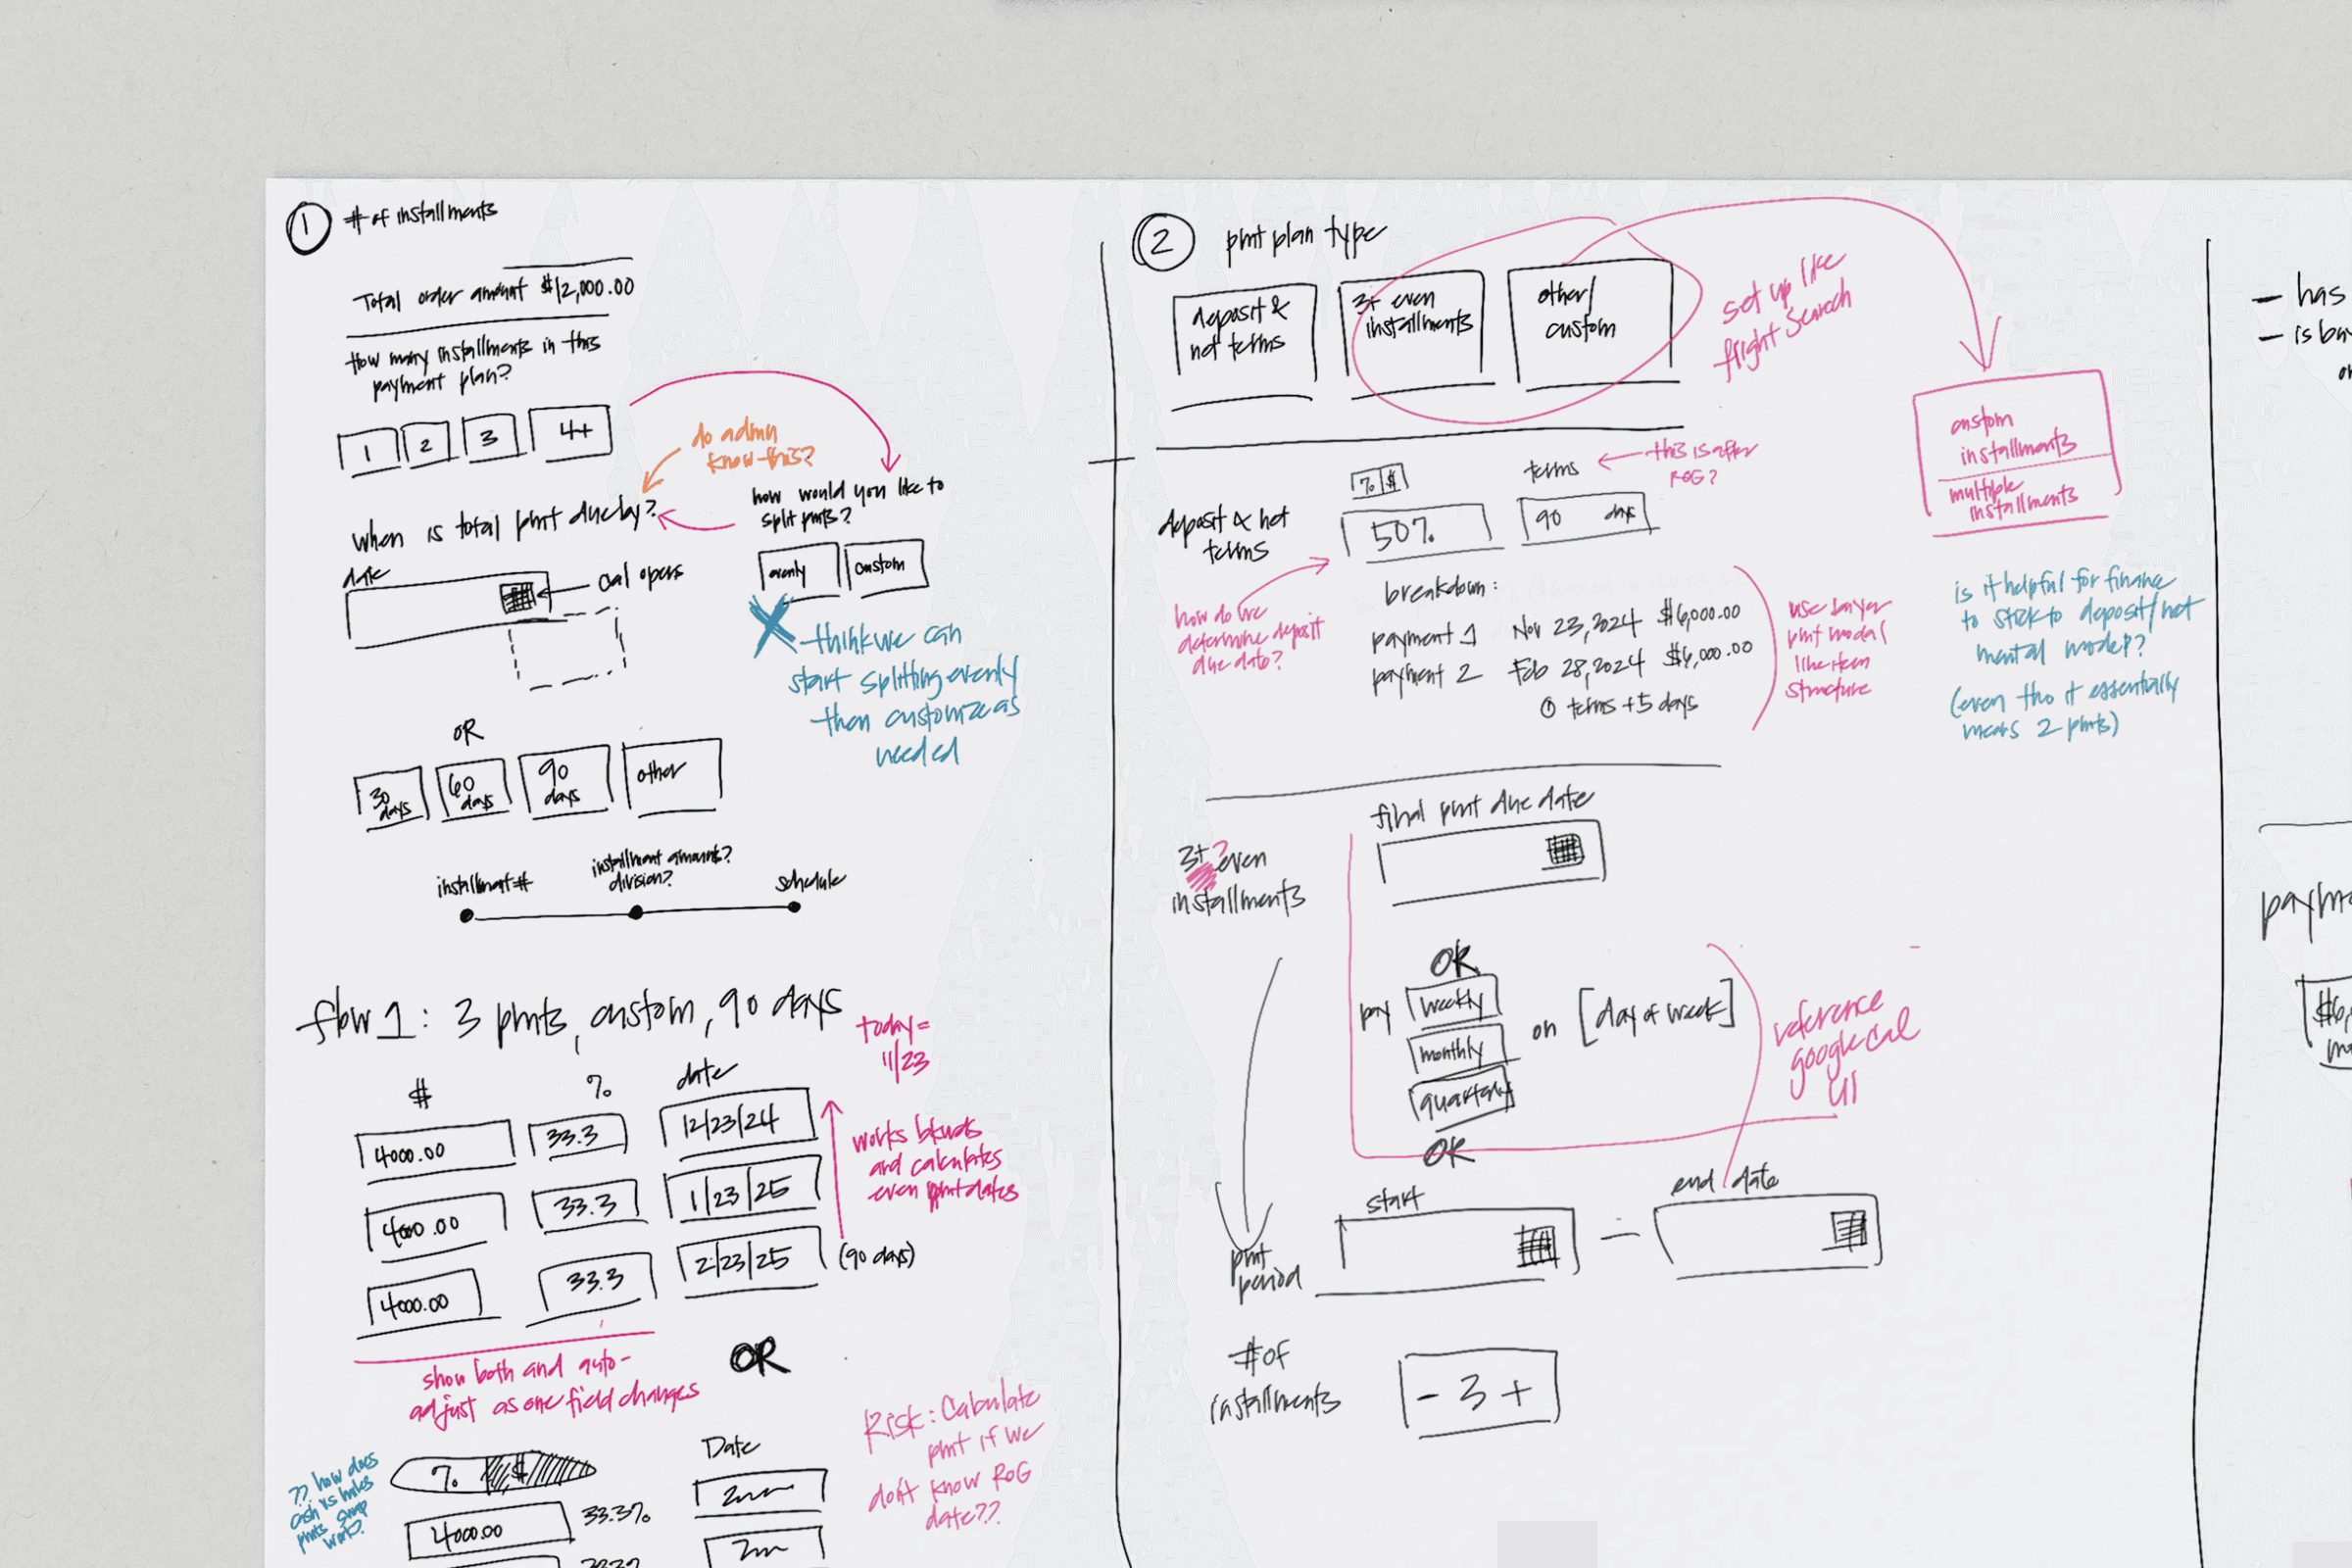 1 # of installments
Total order amount $12,000.00
How many installments in this
payment plan?
1 2 3 4+
do admin
know this?
when is total pmt due by?
how would you like to
split pmts?
evenly custom
date
cal opens
X think we can
start splitting evenly
then customize as
needed
OR
30
days
60
days
90
days
other
installment #
installment amounts?
division?
schedule
flow 1: 3 pmts, custom, 90 days
today =
11/23
$ % date
4000.00 33.3 12/23/24
4000.00 33.3 1/23/25
4000.00 33.3 2/23/25
(90 days)
works bkwds
and calculates
even pmt dates
show both and auto-
adjust as one field changes
OR
?? how does
cash vs
pmts swap
work?
% $
Date
4000.00 33.3%
33.3%
Risk: Calculate
pmt if we
don't know ROG
date??
2 pmt plan type
deposit &
net terms
3+ even
installments
other/
custom
set up like
flight search
custom
installments
multiple
installments
deposit & net
terms
% $
50%
terms
90 days
this is after
ROG?
how do we
determine deposit
due date?
breakdown:
payment 1 Nov 23, 2024 $6,000.00
payment 2 Feb 28, 2024 $6,000.00
terms + 5 days
use buyer
pmt modal
line item
structure
is it helpful for finance
to stick to deposit/net
mental model?
(even tho it essentially
means 2 pmts)
3+? even
installments
final pmt due date
OR
pay weekly on [day of week]
monthly
quarterly
OR
reference
google cal
UI
pmt
period
start
end date
# of
installments
- 3 +
- has
- is
payme
$6,